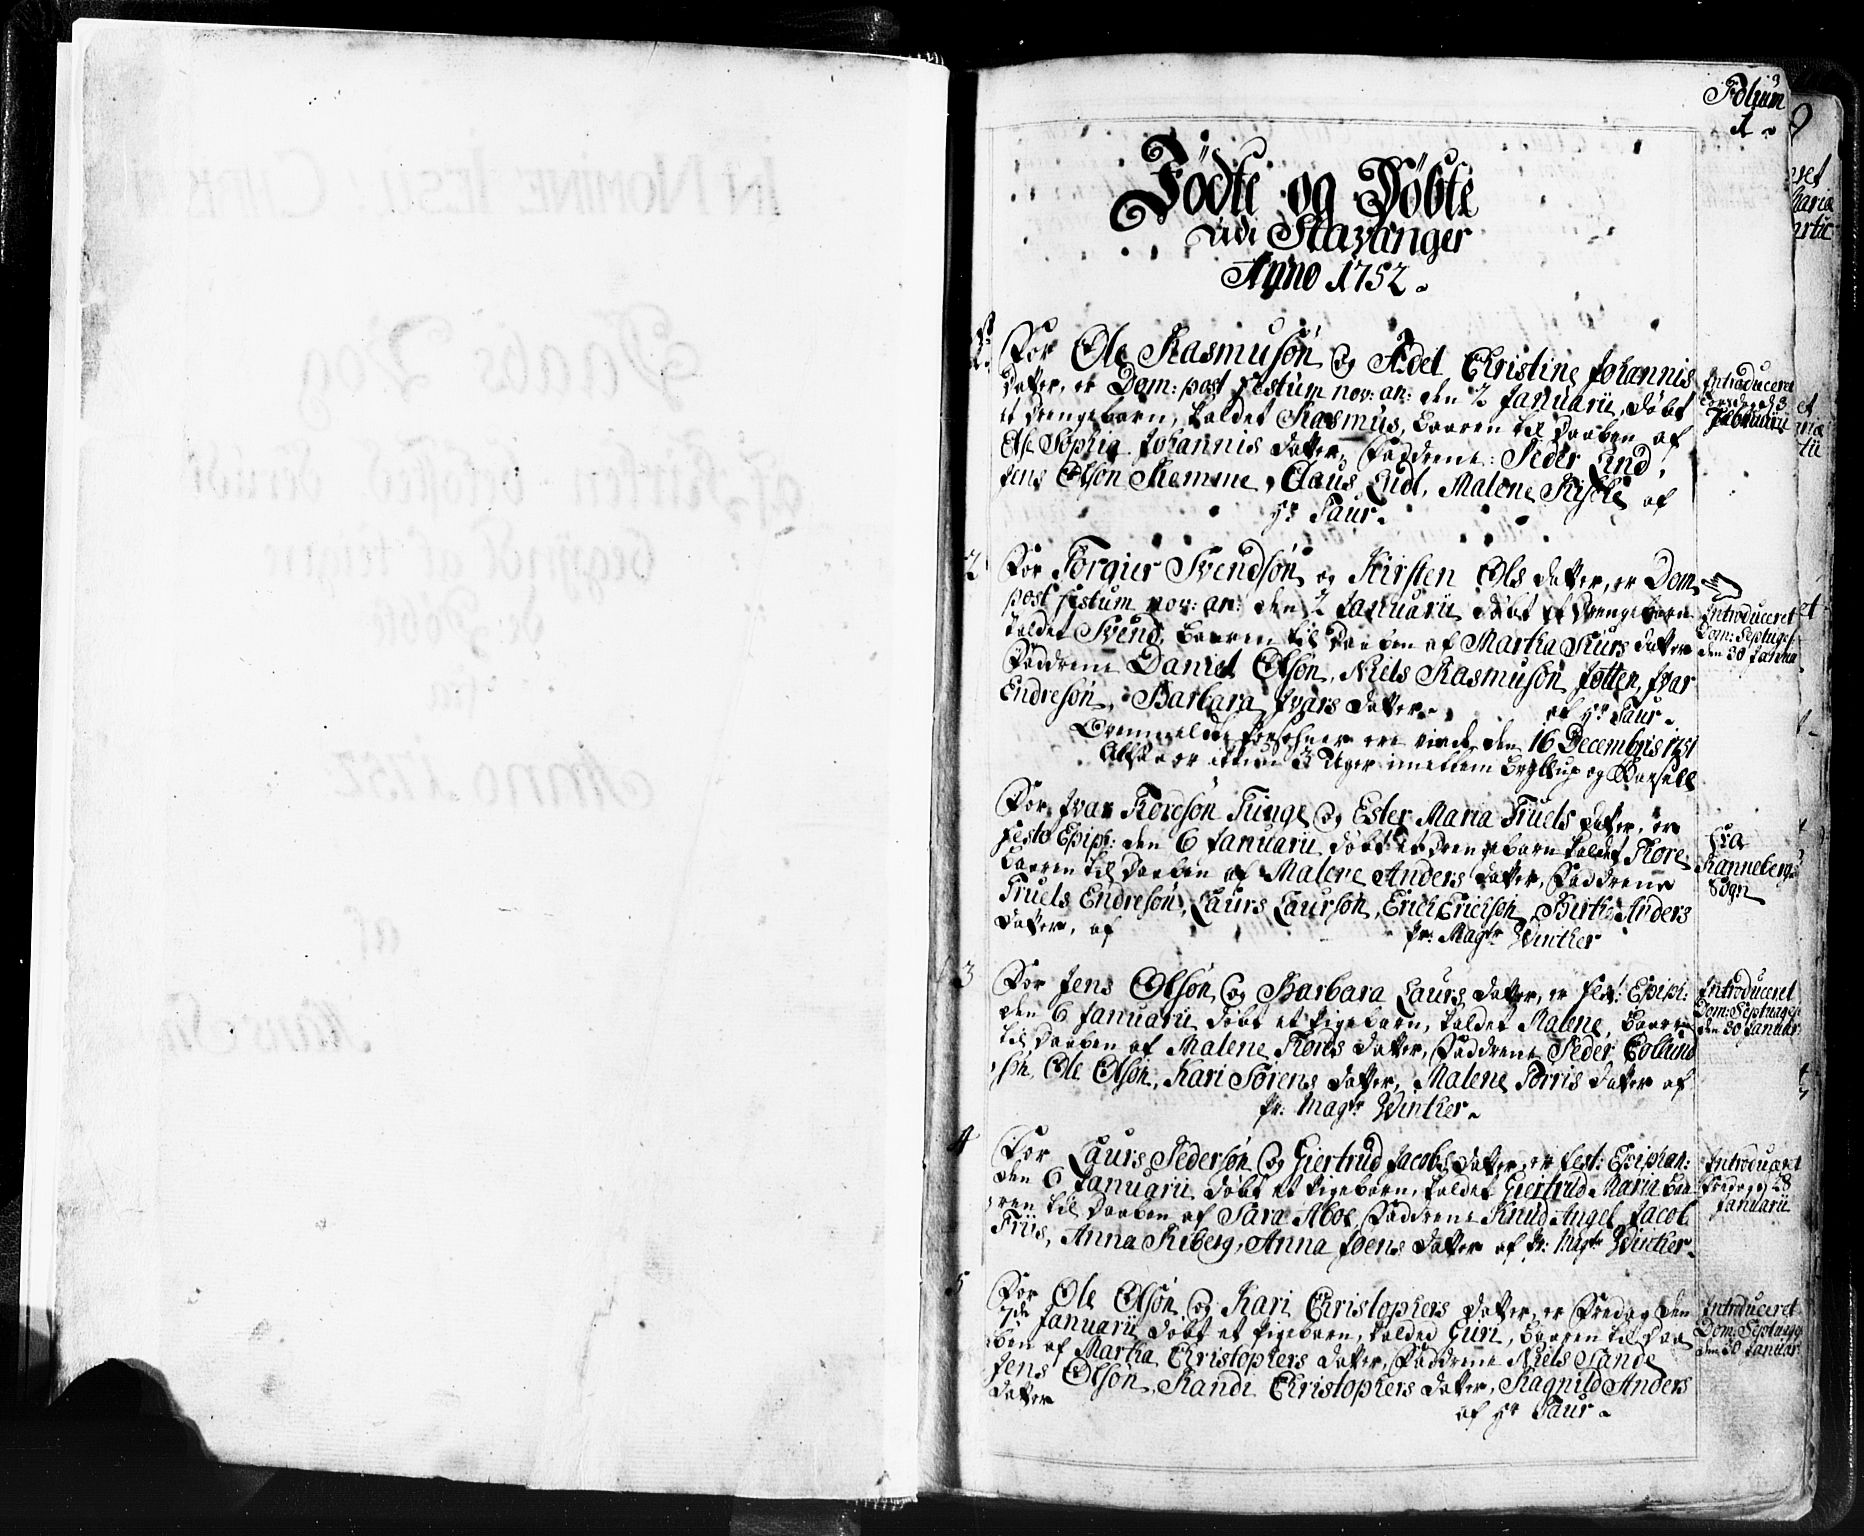 Folium
1
Fødte og Døbte
udi Stavanger
Anno 1752.
For Ole Rasmusøn og Adel Christine Johannis
datter, er Dom: post festum nov: an: den 2 Januarii, døbt
et drengebarn, kaldet Rasmus, baaren til daaben af
Else Sophia Johannis datter, Faddrene: Peder Lind,
Jens Olsøn Klemme, Claus Ludt, Malene Kisbie af
Hr Saur.
Introduceret
3
Februarii
2 For Torgier Svendsøn og Kirsten Ols datter, er Dom
post festum nov: an: den 2 Januarii døbt et drengebarn
kaldet Svend, baaren til daaben af Martha Siurs datter
Faddrene Daniel Olsøn, Niels Rasmusøn Jøtten, Ivar
Endresøn, Barbara Ivars datter. af Hr Saur.
Ovenmeldte Persohner ere viede den 16 Decembris 1751
Altsaa er ickun 3 Uger imellem bryllup og Barsell
Introduceret
Dom: Septuages:
den 30 Janua
For Ivar Toresøn Tinge og Ester Maria Truels datter, er
festo Epiph: den 6 Januarii døbt et drengebarn kaldet Tore
baaren til daaben af Malene Anders datter, Faddrene
Truels Endresøn, Laurs Laursøn, Erich Erichsøn, Birthe Anders
datter, af Hr: Magr Winther
fra
Ranneberg
Sogn
3 For Jens Olsøn og Barbara Laurs datter, er fest: Epiph:
den 6 Januarii døbt et Pigebarn, kaldet Malene, baaren
til daaben af Malene Tores datter, Faddrene Peder
søn, Ole Olsøn, Kari Sørens datter, Malene Torris datter af
Hr: Magr Winther.
Introduceret
Dom: Septuages:
den 30 Januar:
4 For Laurs Pedersøn og Giertrud Jacobs datter, er fest: Epiphan:
den 6 Januarii døbt et Pigebarn, kaldet Giertrud Maria baa
ren til daaben af Sara Aboe, Faddrene Knud Angel, Jacob
Friis, Anna Kiberg, Anna Joens datter af Hr: Magr Winther.
Introduceret
Fredag d 28
Januarii
5 For Ole Olsøn og Kari Christophers datter, er Fredag den
7de Januarii døbt et Pigebarn, kalded Guri, baaren til daa
ben af Martha Christophers datter, Faddrene Niels Sande
Jens Olsøn, Randi Christophers datter, Ragnild Anders
datter af Hr Saur.
Introduceret
Dom: Septuages
den 30 Januar: